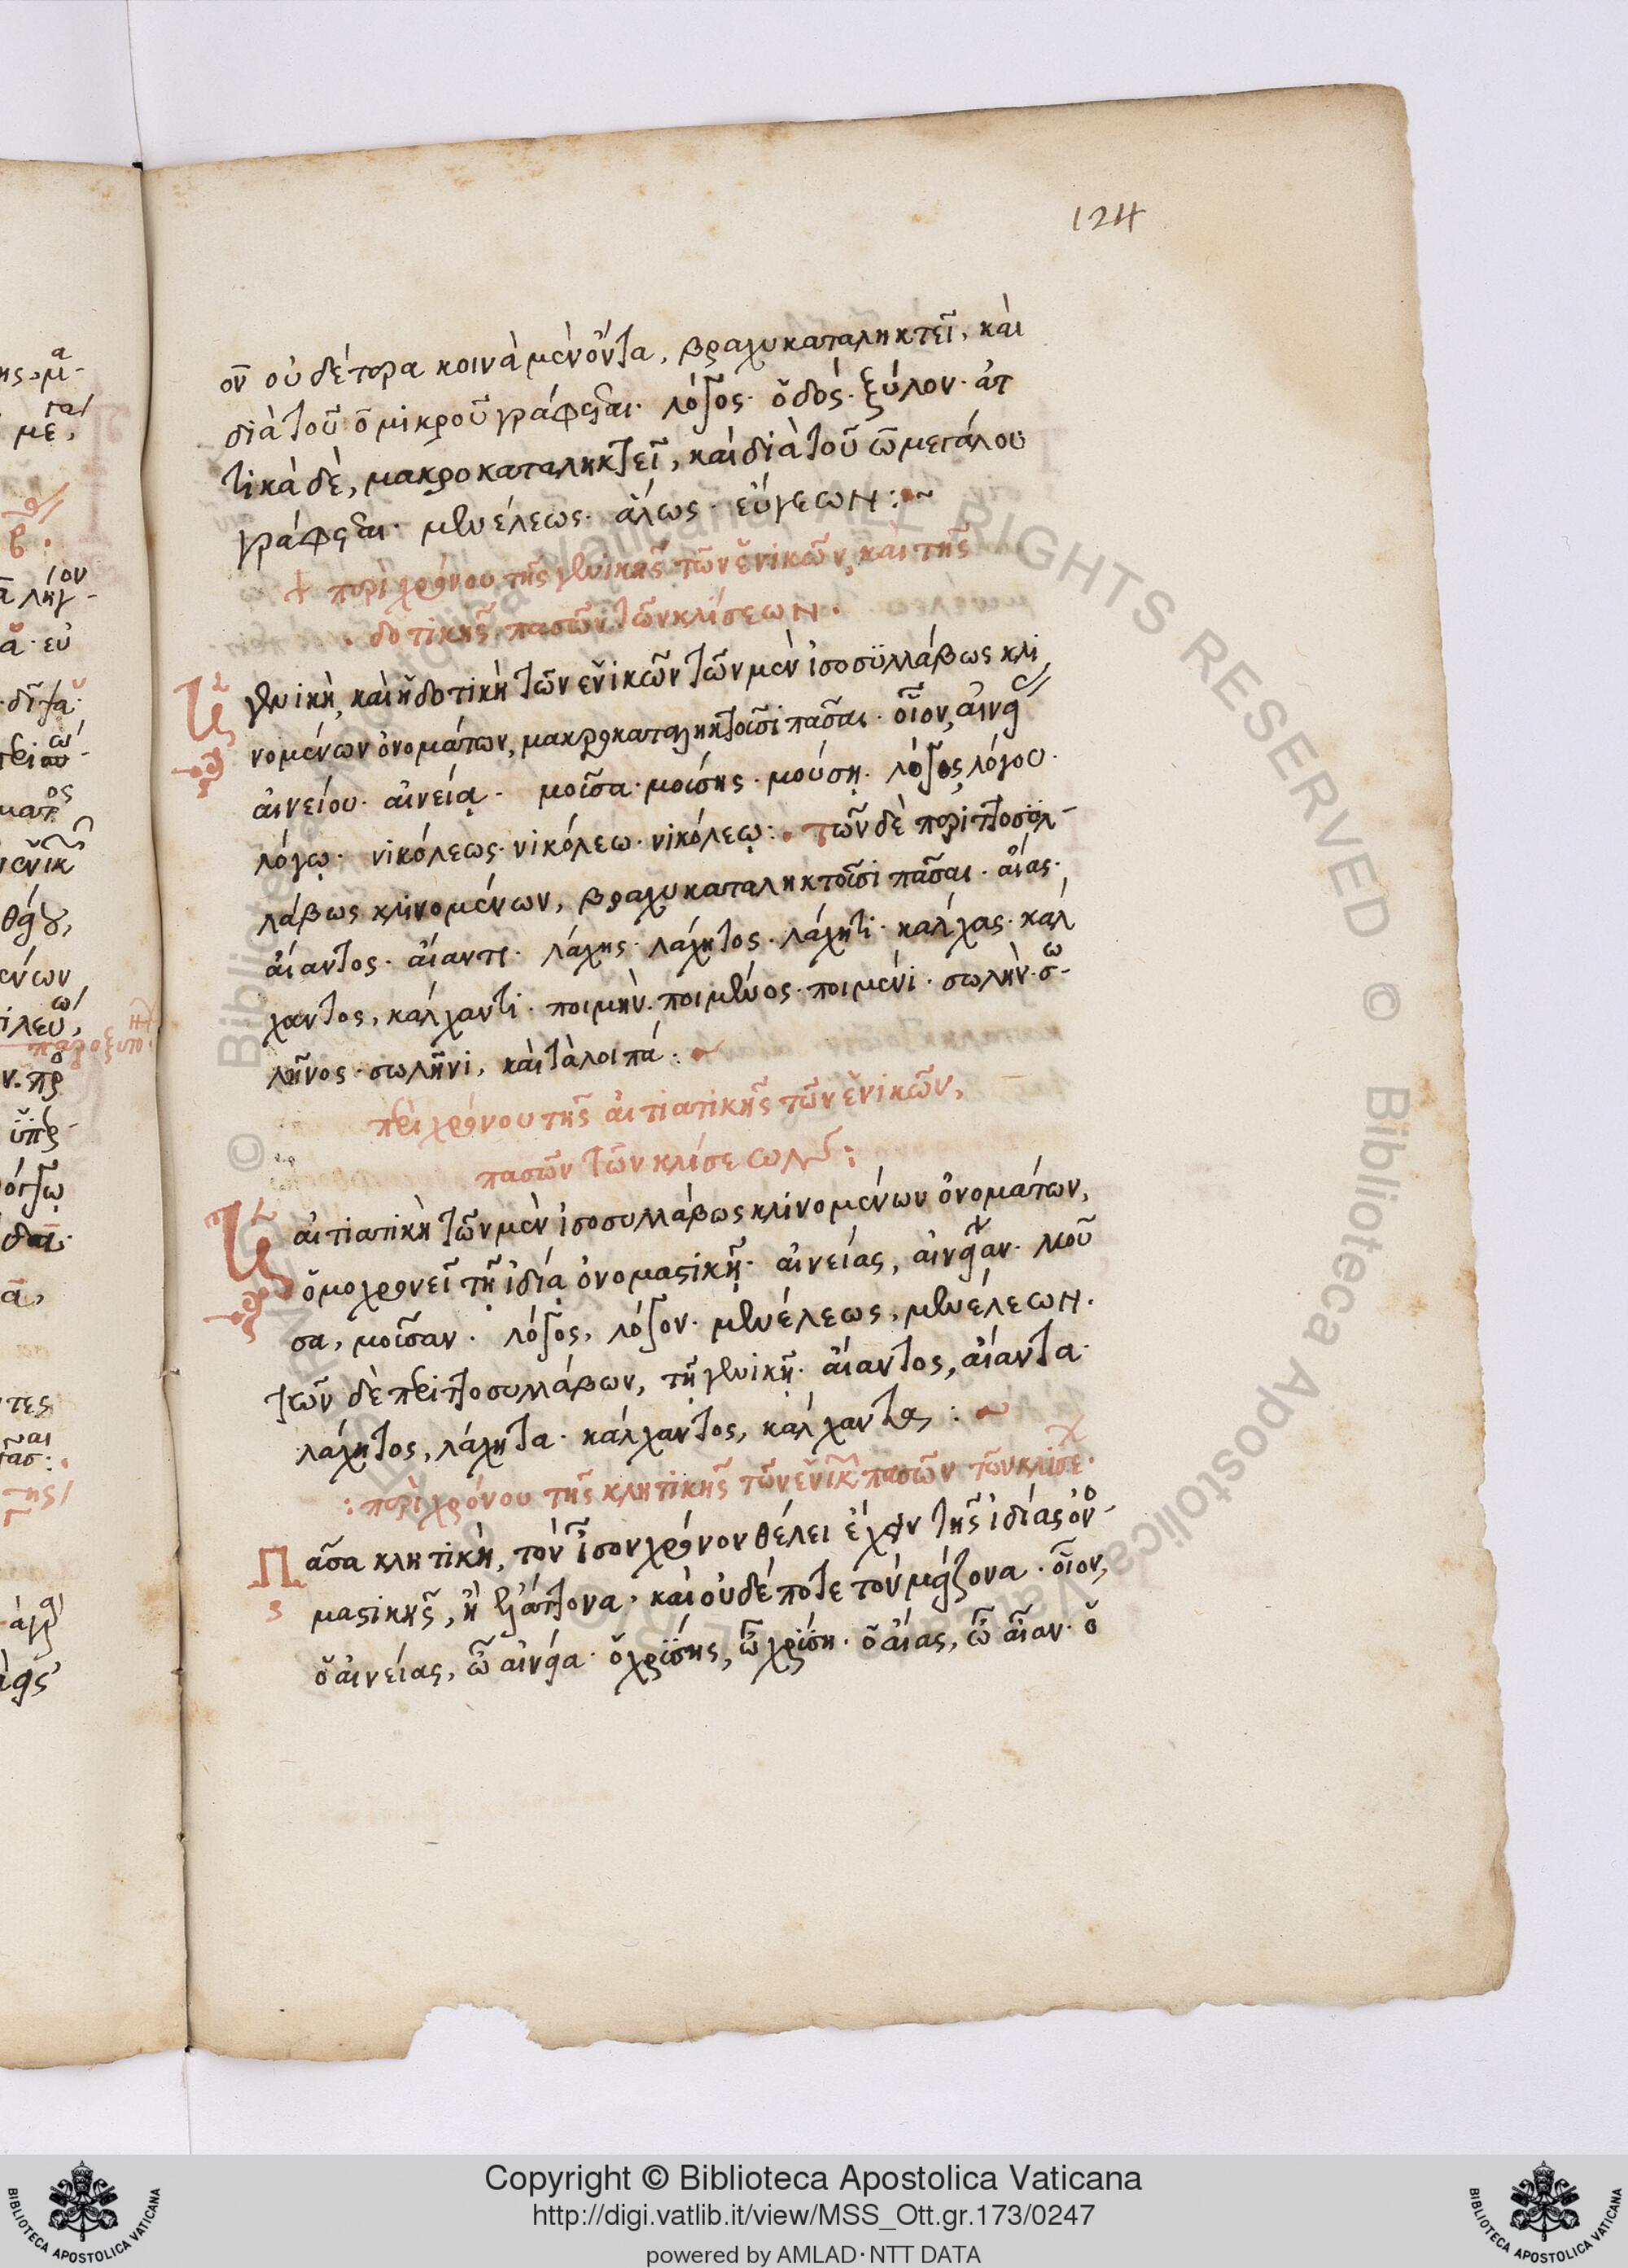 124
ον οὐδέτερα κοινὰ μὲν ὄντα, βραχυκαταληκτεῖ, καὶ
διὰ τοῦ ο μικροῦ γράφεται. λόγος. ὁδός. ξύλον. ἀτ
τικὰ δὲ, μακροκαταληκτεῖ, καὶ διὰ τοῦ ω μεγάλου
γράφεται. μενέλεως. ἅλως. εὔγεων:~
περὶ χρόνου τῆς γενικῆς τῶν ἑνικῶν, καὶ τῆς
δοτικῆς πασῶν τῶν κλίσεων.
Ἡ γενικὴ, καὶ ἡ δοτικὴ τῶν ἑνικῶν τῶν μὲν ἰσοσυλλάβως κλι
νομένων ὀνομάτων, μακροκατάληκτοί εἰσι πᾶσαι. οἷον, αἰνεί
αἰνείου. αἰνείᾳ. μοῦσα. μούσης. μούσῃ. λόγος, λόγου.
λόγῳ. νικόλεως. νικόλεω. νικόλεῳ:. τῶν δὲ περιττοσυλ-
λάβως κλινομένων, βραχυκατάληκτοί εἰσι πᾶσαι. αἴας.
αἴαντος. αἴαντι. λάχης. λάχητος. λάχητι. κάλχας. κάλ
χαντος, κάλχαντι. ποιμήν. ποιμένος. ποιμένι. σωλήν. σω-
λῆνος. σωλῆνι, καὶ τὰ λοιπά:~
περὶ χρόνου τῆς αἰτιατικῆς τῶν ἑνικῶν,
πασῶν τῶν κλίσεων:
Ἡ αἰτιατικὴ τῶν μὲν ἰσοσυλλάβως κλινομένων ὀνομάτων,
ὁμοχρονεῖ τῇ ἰδίᾳ ὀνομαστικῇ. αἰνείας, αἰνείαν. μοῦ
σα, μοῦσαν. λόγος, λόγον. μενέλεως, μενέλεων.
τῶν δὲ περιττοσυλλάβων, τῇ γενικῇ. αἴαντος, αἴαντα.
λάχητος, λάχητα. κάλχαντος, κάλχαντα:~
: περὶ χρόνου τῆς κλητικῆς τῶν ἑνικ πασῶν τῶν κλίσε.
Πᾶσα κλητικὴ, τὸν ἴσον χρόνον θέλει ἔχειν τῆς ἰδίας ὀνο-
μαστικῆς, ἢ ἐλάττονα. καὶ οὐδέποτε τὸν μείζονα. οἷον,
ὁ αἰνείας, ὦ αἰνεία. ὁ χρύσης, ὦ χρύση. ὁ αἴας, ὦ αἶαν. ὁ
Copyright © Biblioteca Apostolica Vaticana
http://digi.vatlib.it/view/MSS_Ott.gr.173/0247
powered by AMLAD·NTT DATA